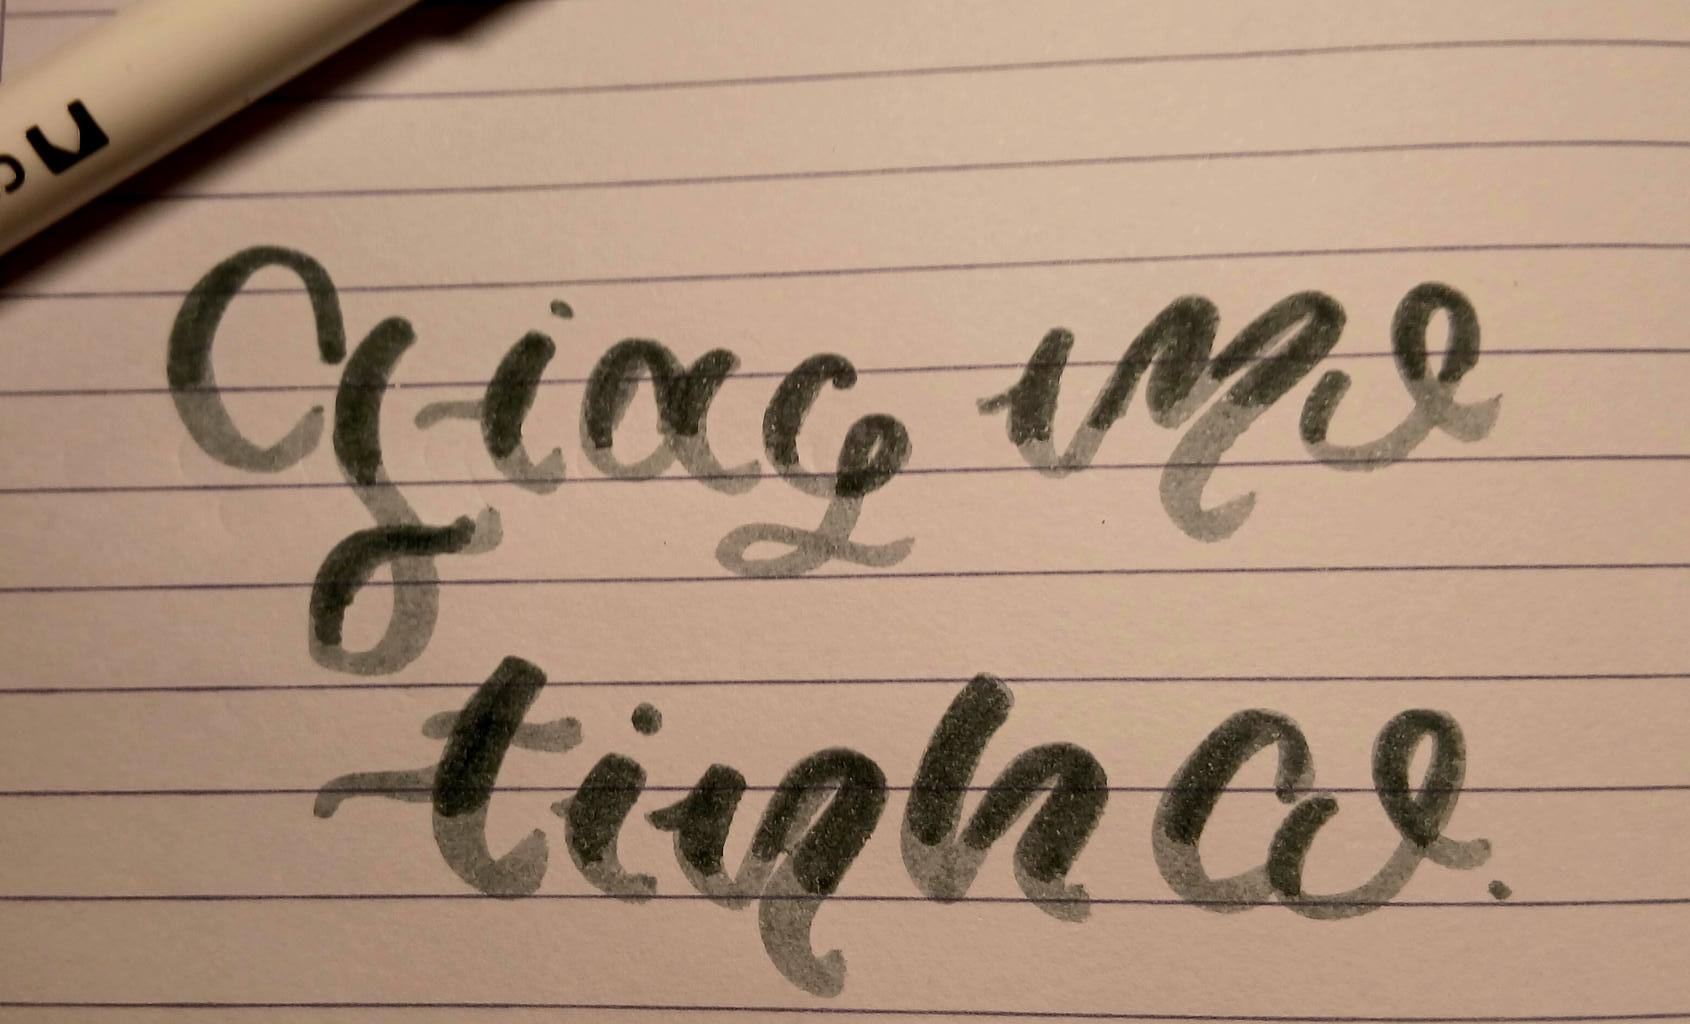 Giac mo
tinh co.